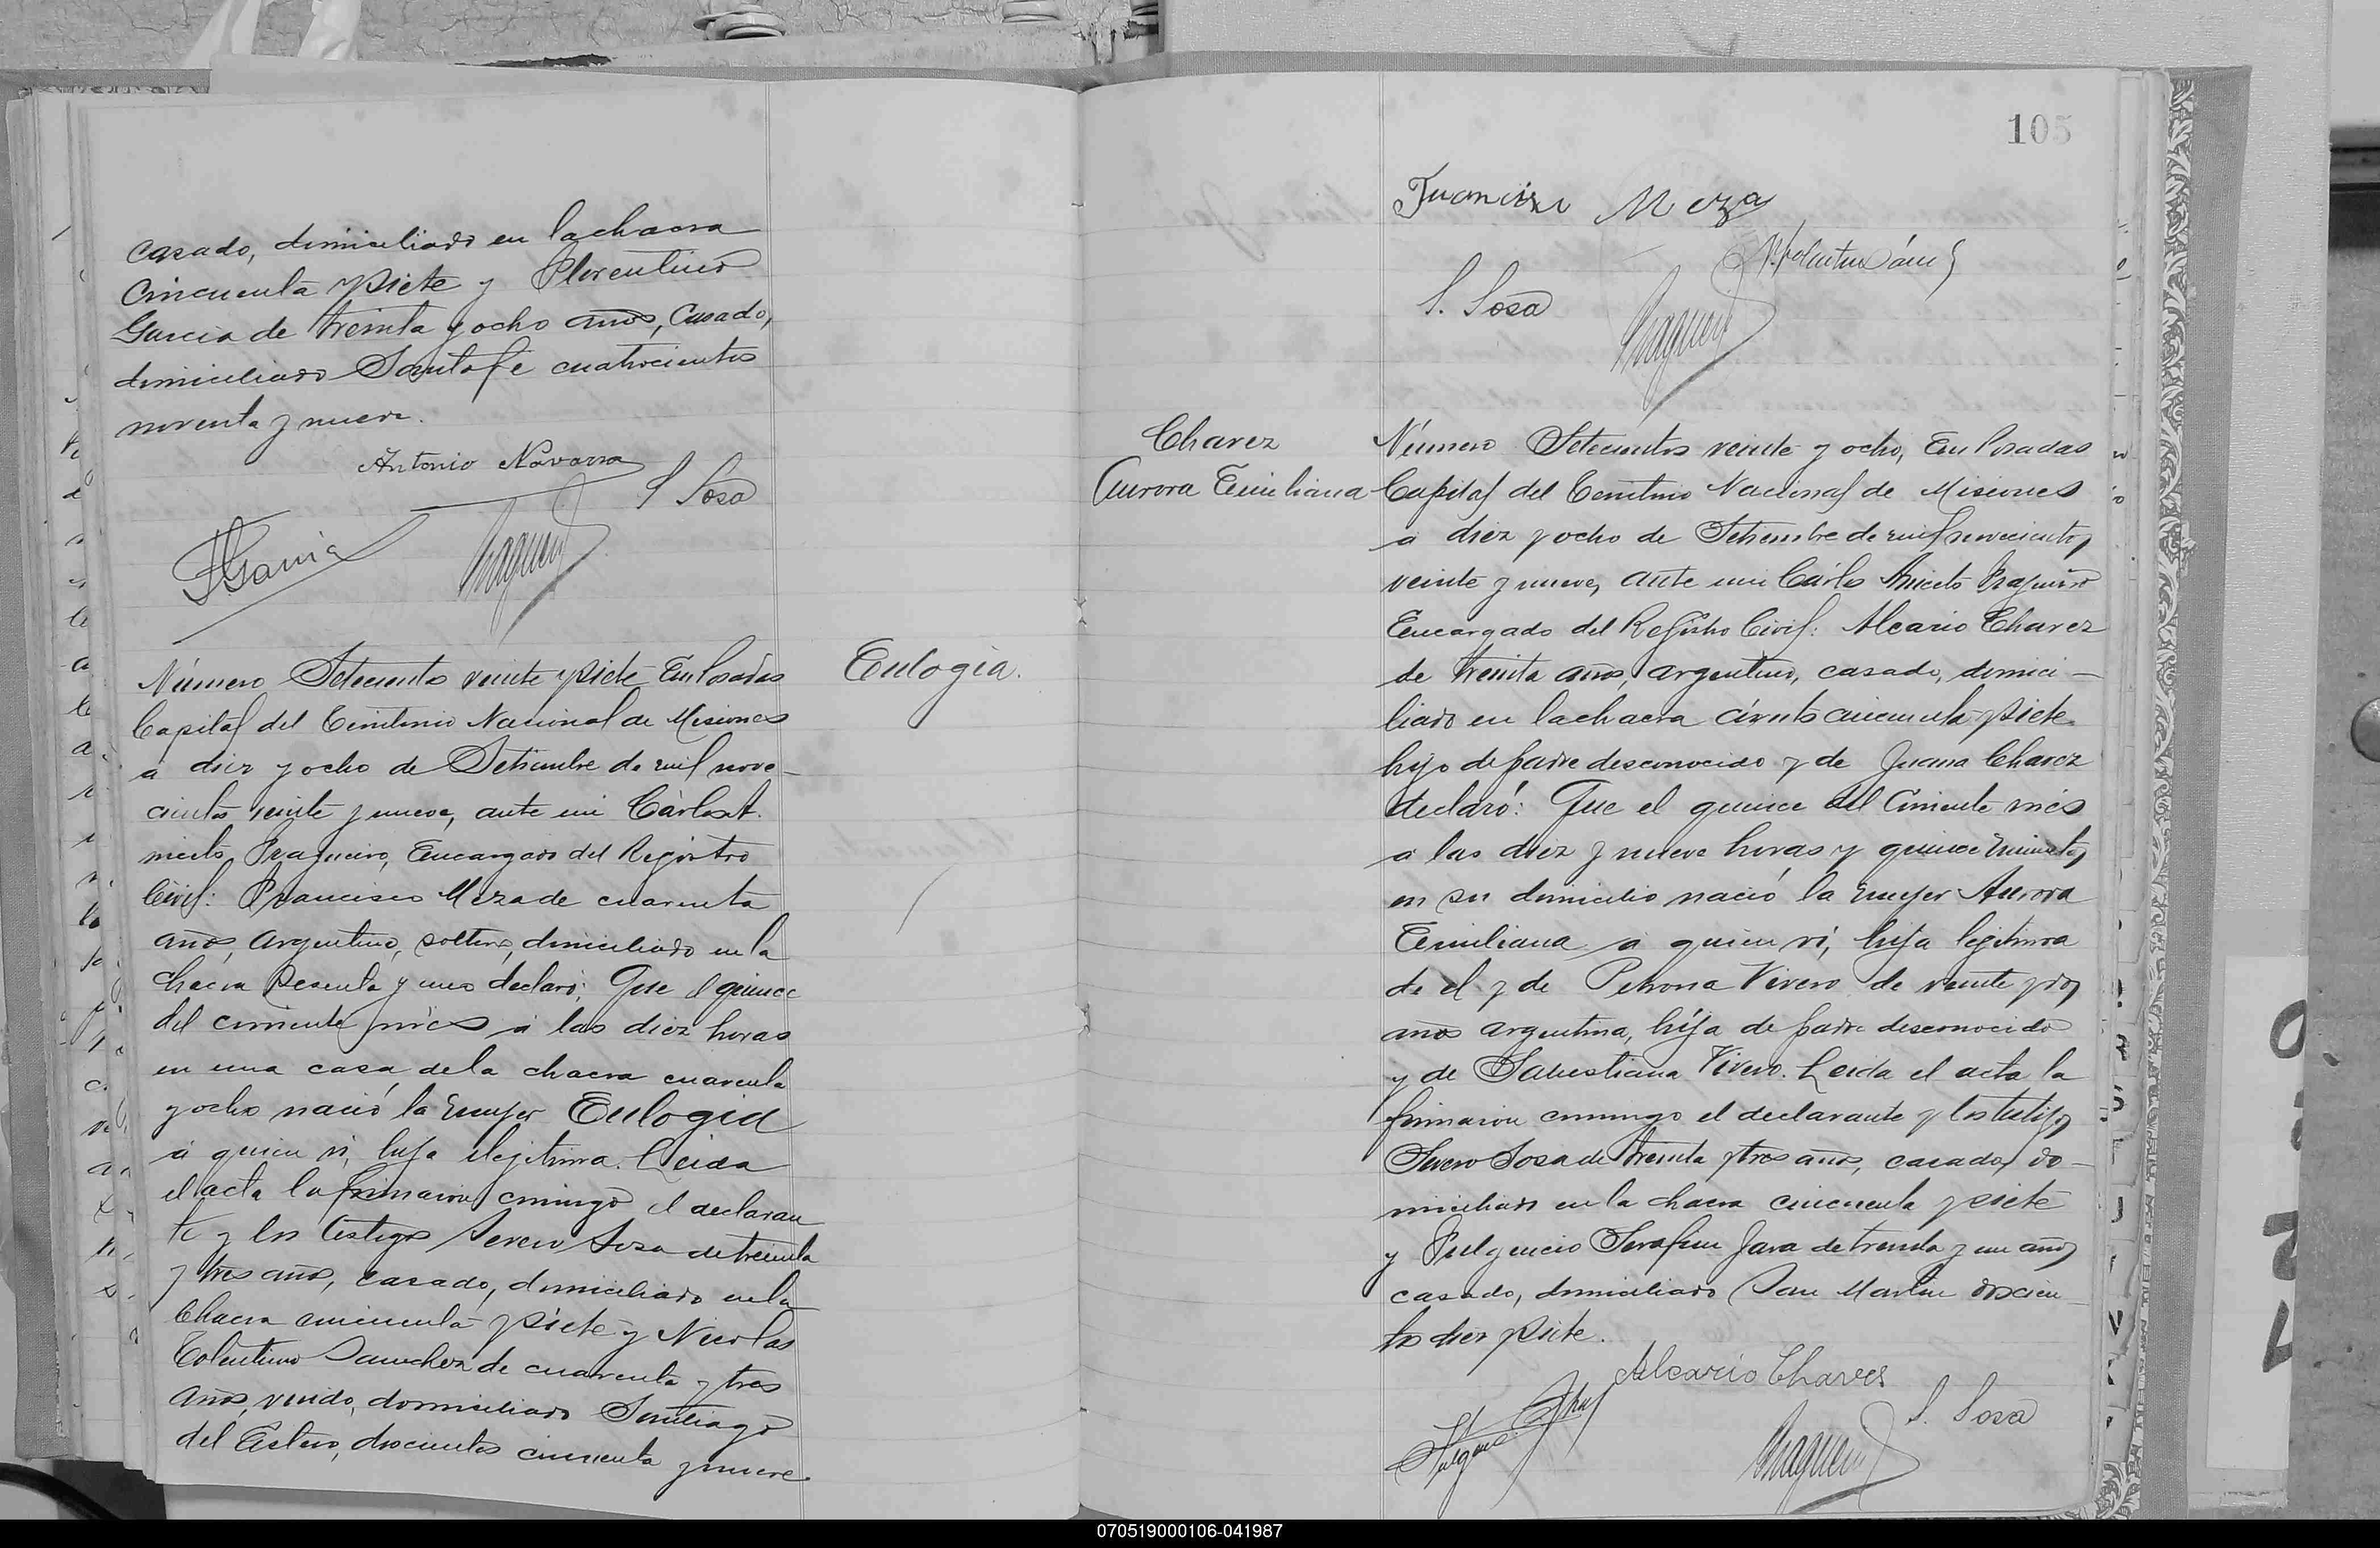 casado, domiciliado en la chacra
cincuenta y siete y Florentino
Garcia de treinta y ocho años, casado,
domiciliado Santa fé cuatrocientos
noventa y nueve.
Antonio Navarro
S Sosa
F Garcia
Número Setecientos veinte y siete En Posadas
Capital del Territorio Nacional de Misiones
á diez y ocho de Setiembre de mil nove-
cientos veinte y nueve, ante mi Cárlos A.
niceto Fragueiro, Encargado del Registro
Civil: Francisco Meza de cuarenta
años, argentino, soltero, domiciliado en la
chacra sesenta y uno declaró: Que el quince
del corriente més á las diez horas
en una casa de la chacra cuarenta
y ocho nació la mujer Eulogia
á quien ví, hija ilegitima. Leida
el acta la firmaron conmigo el declaran
te y los testigos Severo Sosa de treinta
y tres años, casado, domiciliado en la
chacra cincuenta y siete y Nicolas
Tolentino Sanchez de cuarenta y tres
años, viudo, domiciliado Santiago
del Estero, doscientos cincuenta y nueve.
Eulogia.
105
Francisco Meza
N. Tolentino Sánz
S. Sosa
Chavez
Aurora Emiliana
Número Setecientos veinte y ocho, En Posadas
Capital del Territorio Nacional de Misiones
á diez y ocho de Setiembre de mil novecientos
veinte y nueve, ante mi Cárlos Aniceto Fragueiro
Encargado del Registro Civil: Alcario Chavez
de treinta años, argentino, casado, domici-
liado en la chacra ciento cincuenta y siete
hijo de padre desconocido y de Juana Chavez
declaró: Que el quince del corriente més
á las diez y nueve horas y quince minutos
en su domicilio nació la mujer Aurora
Emiliana á quien ví, hija legitima
de él y de Petrona Vivero de veinte y dos
años argentina, hija de padre desconocido
y de Sebastiana Vivero. Leida el acta la
firmaron conmigo el declarante y los testigos
Severo Sosa de treinta y tres años, casado, do-
miciliado en la chacra cincuenta y siete
y Fulgencio Serafin Jara de treinta y un años
casado, domiciliado San Martin doscien-
tos diez y siete.
Alcario Chaves
S. Sosa
070519000106-041987